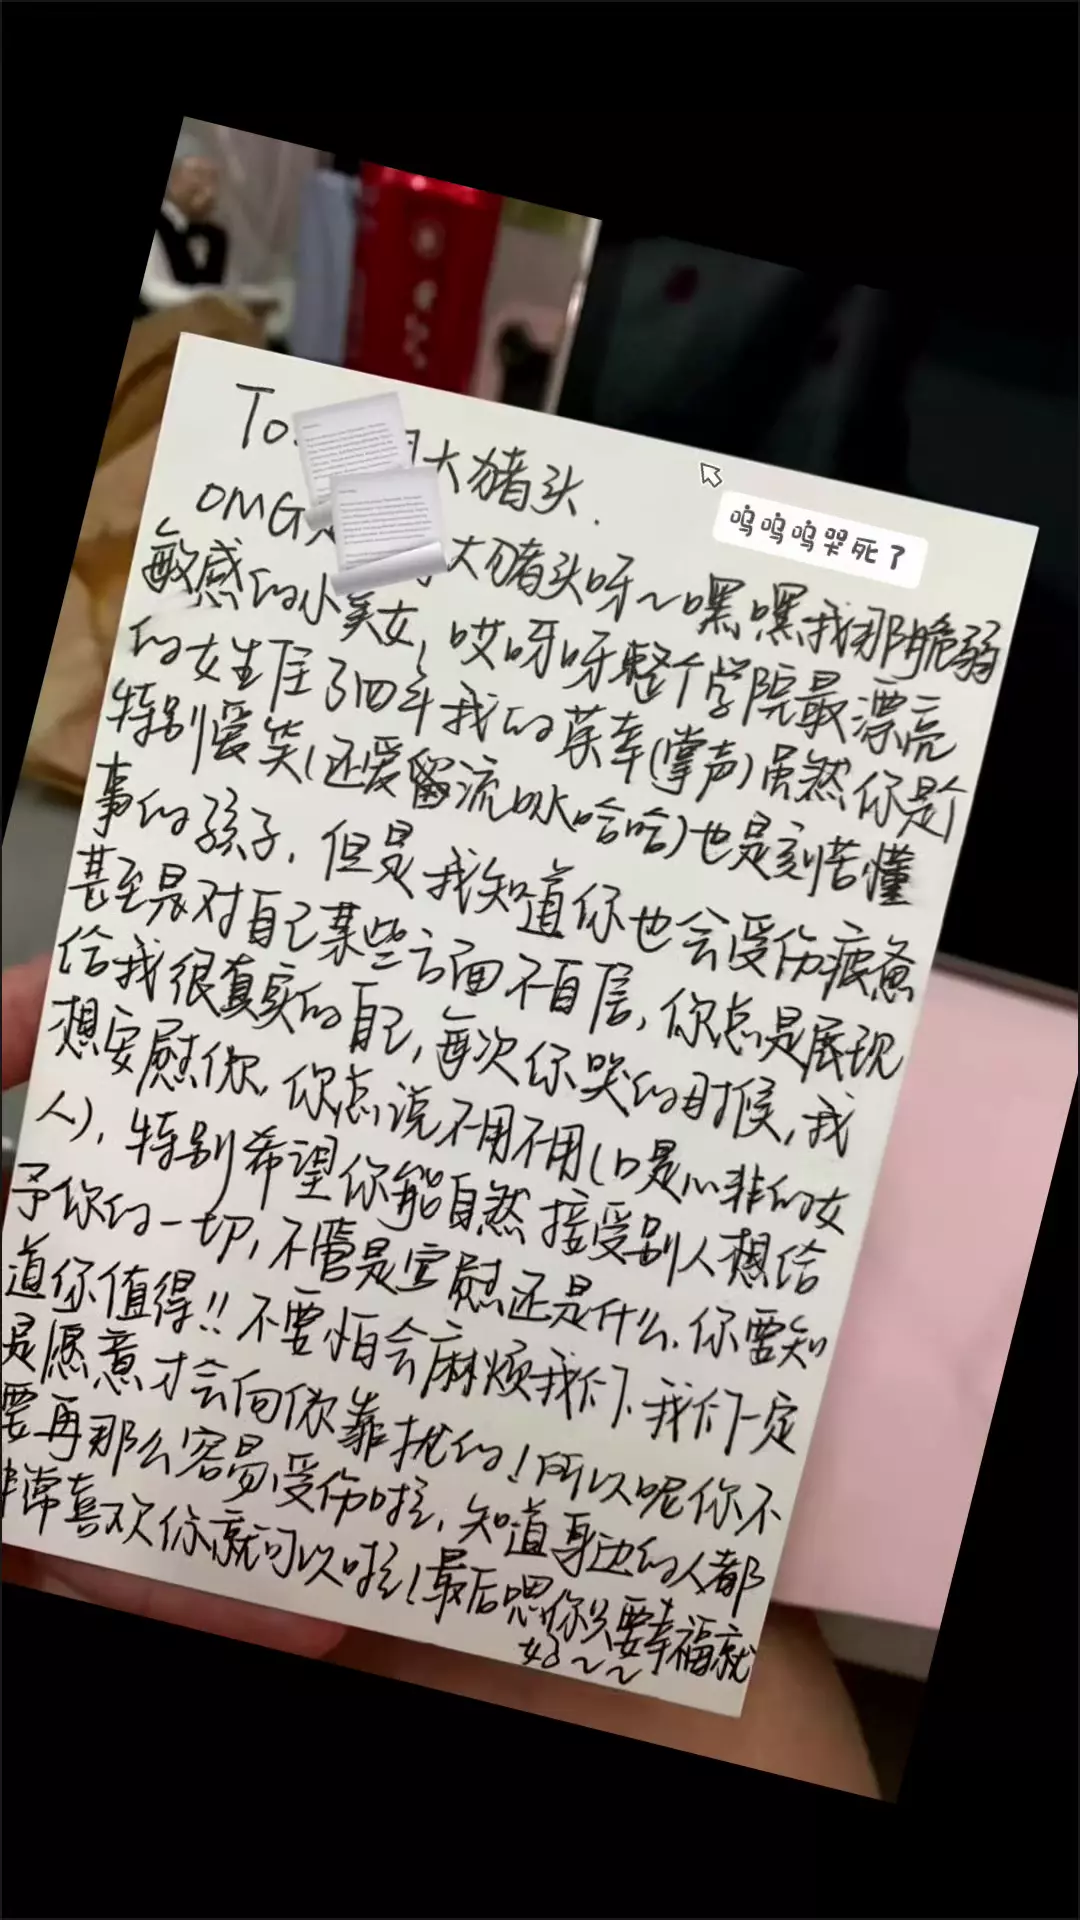 To. 大猪头.
呜呜呜哭死了
OMG 大猪头呀~嘿嘿我那脆弱
敏感的小美女，哎呀呀整个学院最漂亮
的女生居了四年我的荣幸(掌声)虽然你是个
特别爱笑(还爱留流口水哈哈)也是刻苦懂
事的孩子，但是我知道你也会受伤疲惫
甚至是对自己某些方面不自信，你总是展现
给我很真实的自己，每次你哭的时候，我
想安慰你，你总说不用不用(口是心非的女
人)，特别希望你能自然接受别人想给
予你的一切，不管是安慰还是什么.你要知
道你值得!!不要怕会麻烦我们、我们一定
是愿意才会向你靠拢的!所以呢你不
要再那么容易受伤啦，知道身边的人都
非常喜欢你就可以啦!最后嗯你只要幸福就
好~~~